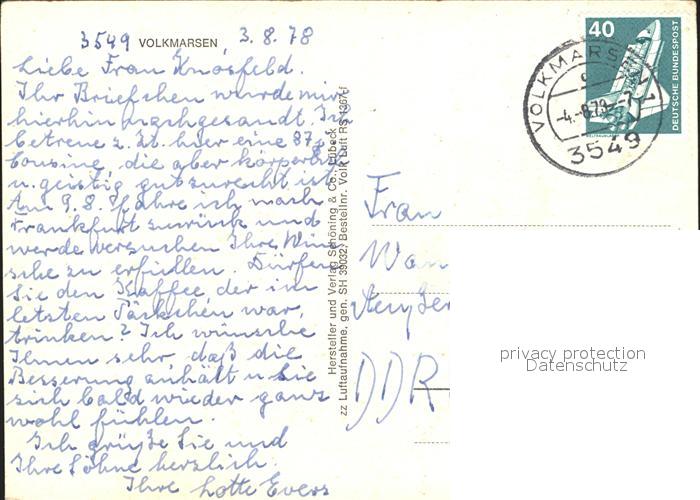 3549 VOLKMARSEN, 3.8.78
Liebe Frau Knosfeld.
Ihr Briefchen wurde mir
hierhin nachgesandt. Ich
betreue z. Zt. hier eine 87j.
Cousine, die aber körperlich
u. geistig gut zurecht ist.
Am 9.8. fahre ich nach
Frankfurt zurück und
werde versuchen Ihre Wün
sche zu erfüllen. Dürfen
Sie den Kaffee der im
letzten Päckchen war,
trinken? Ich wünsche
Ihnen sehr, daß die
Besserung anhält u Sie
sich bald wieder ganz
wohl fühlen.
Ich grüße Sie und
Ihre Söhne herzlich.
Ihre Lotte Evers
Hersteller und Verlag Schöning & Co., Lübeck
zz Luftaufnahme, gen. SH 39032, Bestellnr. Volk Luft RS 1367 f
40
DEUTSCHE BUNDESPOST
VOLKMARSEN 1
c
-4.-8.78--7
3549
Frau
Wan
DDR
privacy protection
Datenschutz